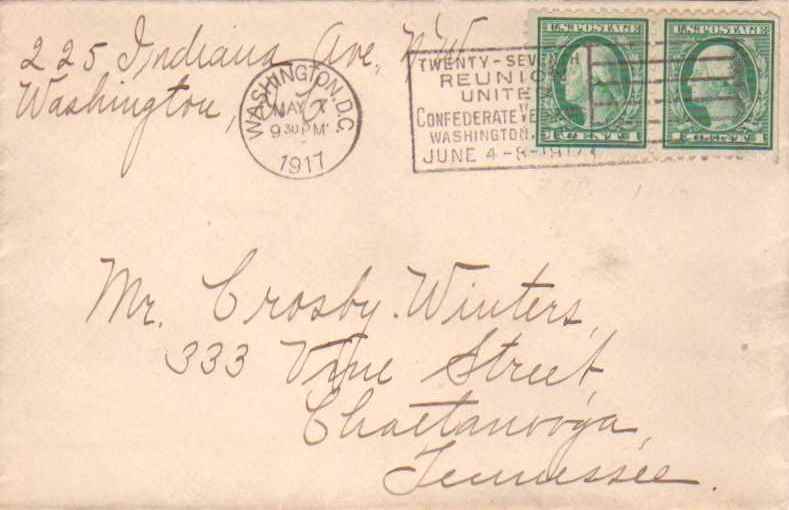 225 Indiana Ave, N.W.
Washington, D.C.
WASHINGTON, D.C.
MAY 7
9 30 PM
1917
TWENTY-SEVENTH
REUNION
UNITED
CONFEDERATE VE
WASHINGTON,
JUNE 4-8-1917
U.S. POSTAGE
1 CENT 1
U.S. POSTAGE
1 CENT 1
Mr. Crosby Winters,
333 Vine Street,
Chattanooga,
Tennessee.